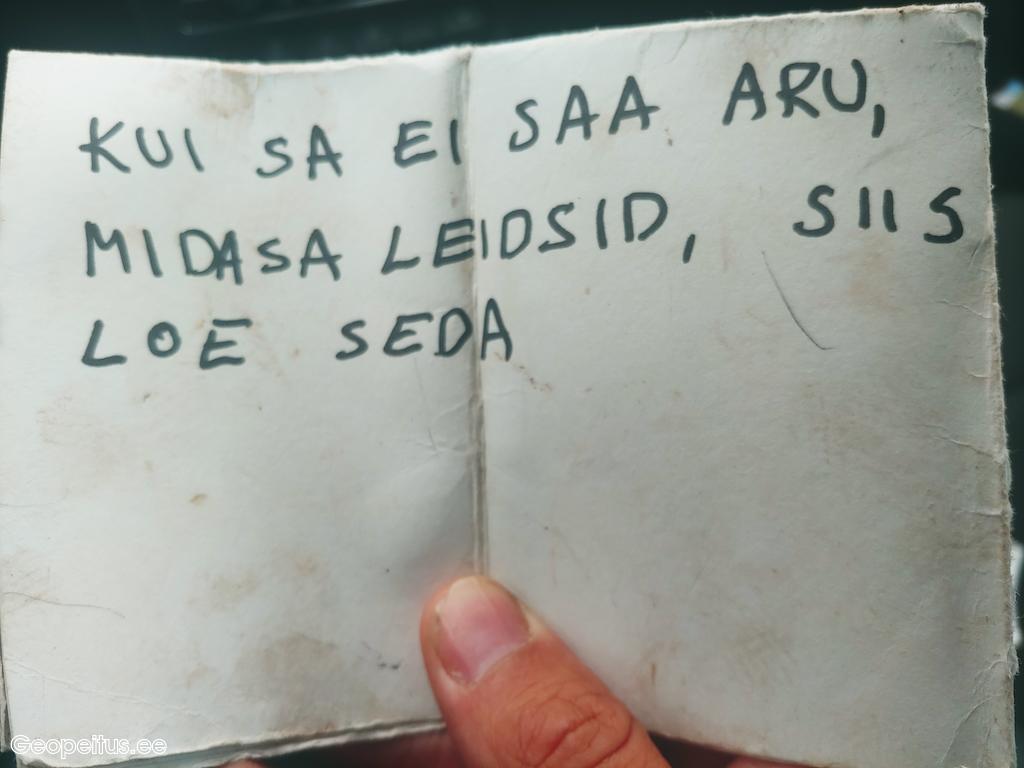 KUI SA EI SAA ARU,
MIDASA LEIDSID, SIIS
LOE SEDA
Geopeitus.ee